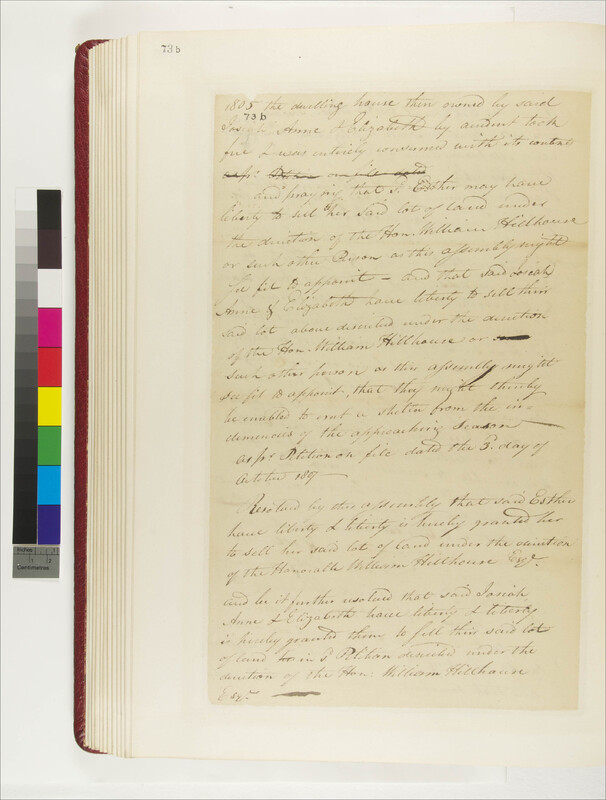 73 b
1805 the dwelling house then owned by said
73 b
Josiah, Anne & Elizabeth by accident took
fire & was entirely consumed with its content
as pr. Petition on file dated
and praying that sd. Esther may have
liberty to sell her said lot of land under
the direction of the Hon. William Hillhouse
or such other Person as this assembly might
see fit to appoint – and that said Josiah
Anne & Elizabeth have liberty to sell their
said lot above described under the direction
of the Hon. William Hillhouse or
such other person as this assembly might
see fit to appoint, that they might thereby
be enabled to erect a shelter from the in-
clemencies of the approaching season
as pr. Petition on file dated the 3d. day of
October 1807
Resolved by this assembly that said Esther
have liberty & liberty is hereby granted her
to sell her said lot of land under the direction
of the Honorable William Hillhouse Esqr.
and be it further resolved that said Josiah
Anne & Elizabeth have liberty & liberty
is hereby granted them to sell their said lot
of land in sd. Petition described under the
direction of the Hon. William Hillhouse
Esqr.
Inches
Centimetres